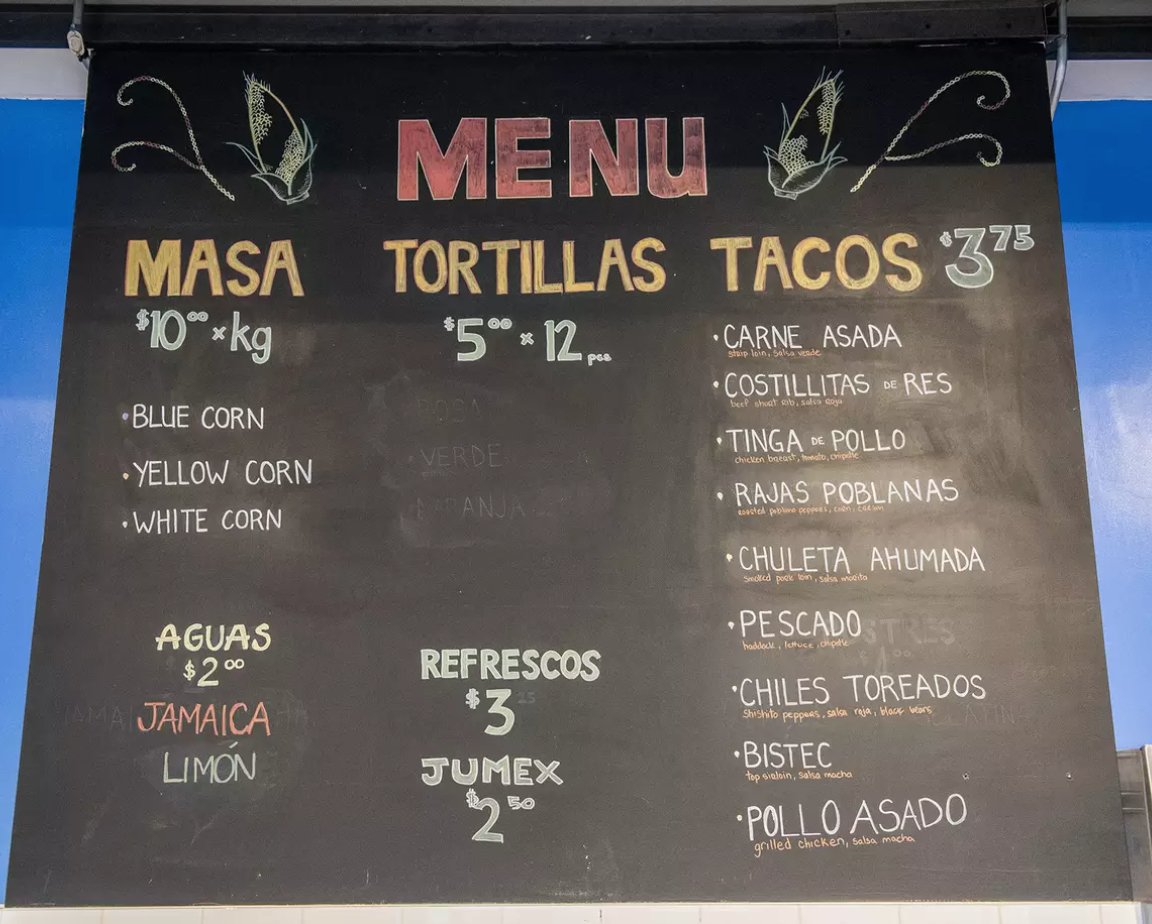 MENU
MASA
$10⁰⁰ × kg
• BLUE CORN
• YELLOW CORN
• WHITE CORN
AGUAS
$2⁰⁰
JAMAICA
LIMÓN
TORTILLAS
$5⁰⁰ × 12 pcs
ROSA
VERDE
NARANJA
REFRESCOS
$3
JUMEX
$2⁵⁰
TACOS $3⁷⁵
• CARNE ASADA
strip loin, salsa verde
• COSTILLITAS DE RES
beef short rib, salsa roja
• TINGA DE POLLO
chicken breast, tomato, chipotle
• RAJAS POBLANAS
roasted poblano peppers, corn,
• CHULETA AHUMADA
smoked pork loin, salsa morita
• PESCADO
haddock, lettuce, chipotle
• CHILES TOREADOS
shishito peppers, salsa roja, black beans
• BISTEC
top sirloin, salsa macha
• POLLO ASADO
grilled chicken, salsa macha